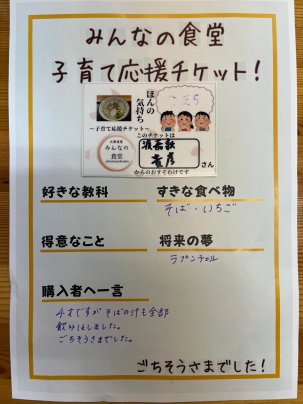 みんなの食堂
子育て応援チケット!
ほんの
気持ち
~子育て応援チケット~
このチケットは
みんなの
食堂
さん
からのおすそわけです
好きな教科
すきな食べ物
そば・いちご
得意なこと
将来の夢
ラプンチェル
購入者へ一言
4才ですがそばの汁も全部
飲みほしました。
ごちそうさまでした。
ごちそうさまでした!